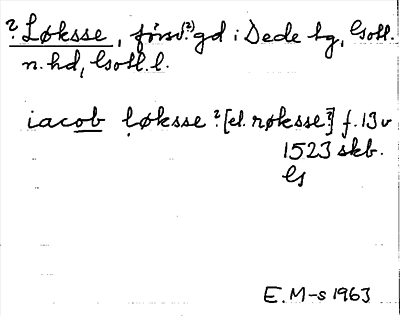 ? Løksse, försv.(?) gd i Dede sg, Gotl.
n. hd, Gotl. l.
iacob løksse? [el. røksse?] f. 13 v
1523 skb.
Gs
E. M-s 1963